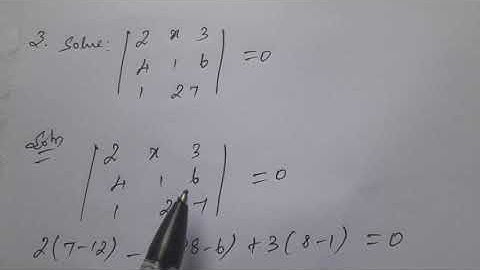 3. Solve: | 2 x 3 |
| 4 1 6 | = 0
| 1 2 7 |
Soln
| 2 x 3 |
| 4 1 6 | = 0
| 1 2 7 |
2(7-12) - (28-6) + 3(8-1) = 0